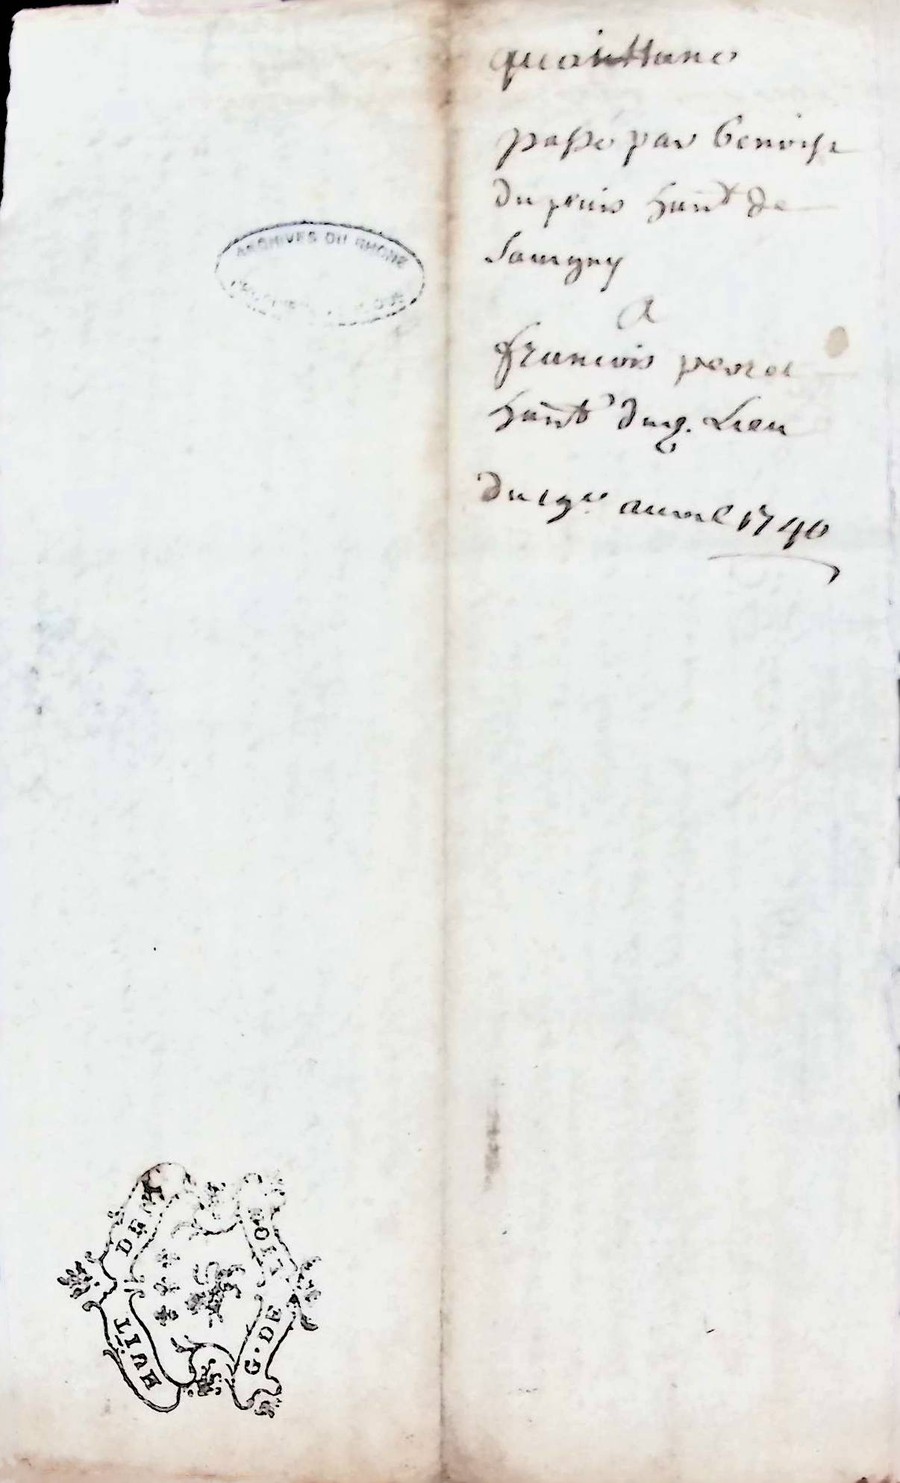 quaittance
passé par benoist
du puis hant de
Savigny
A
francois perret
hant dud. Lieu
du 19e auril 1740
ARCHIVES DU RHONE
HUIT DE
G. DE